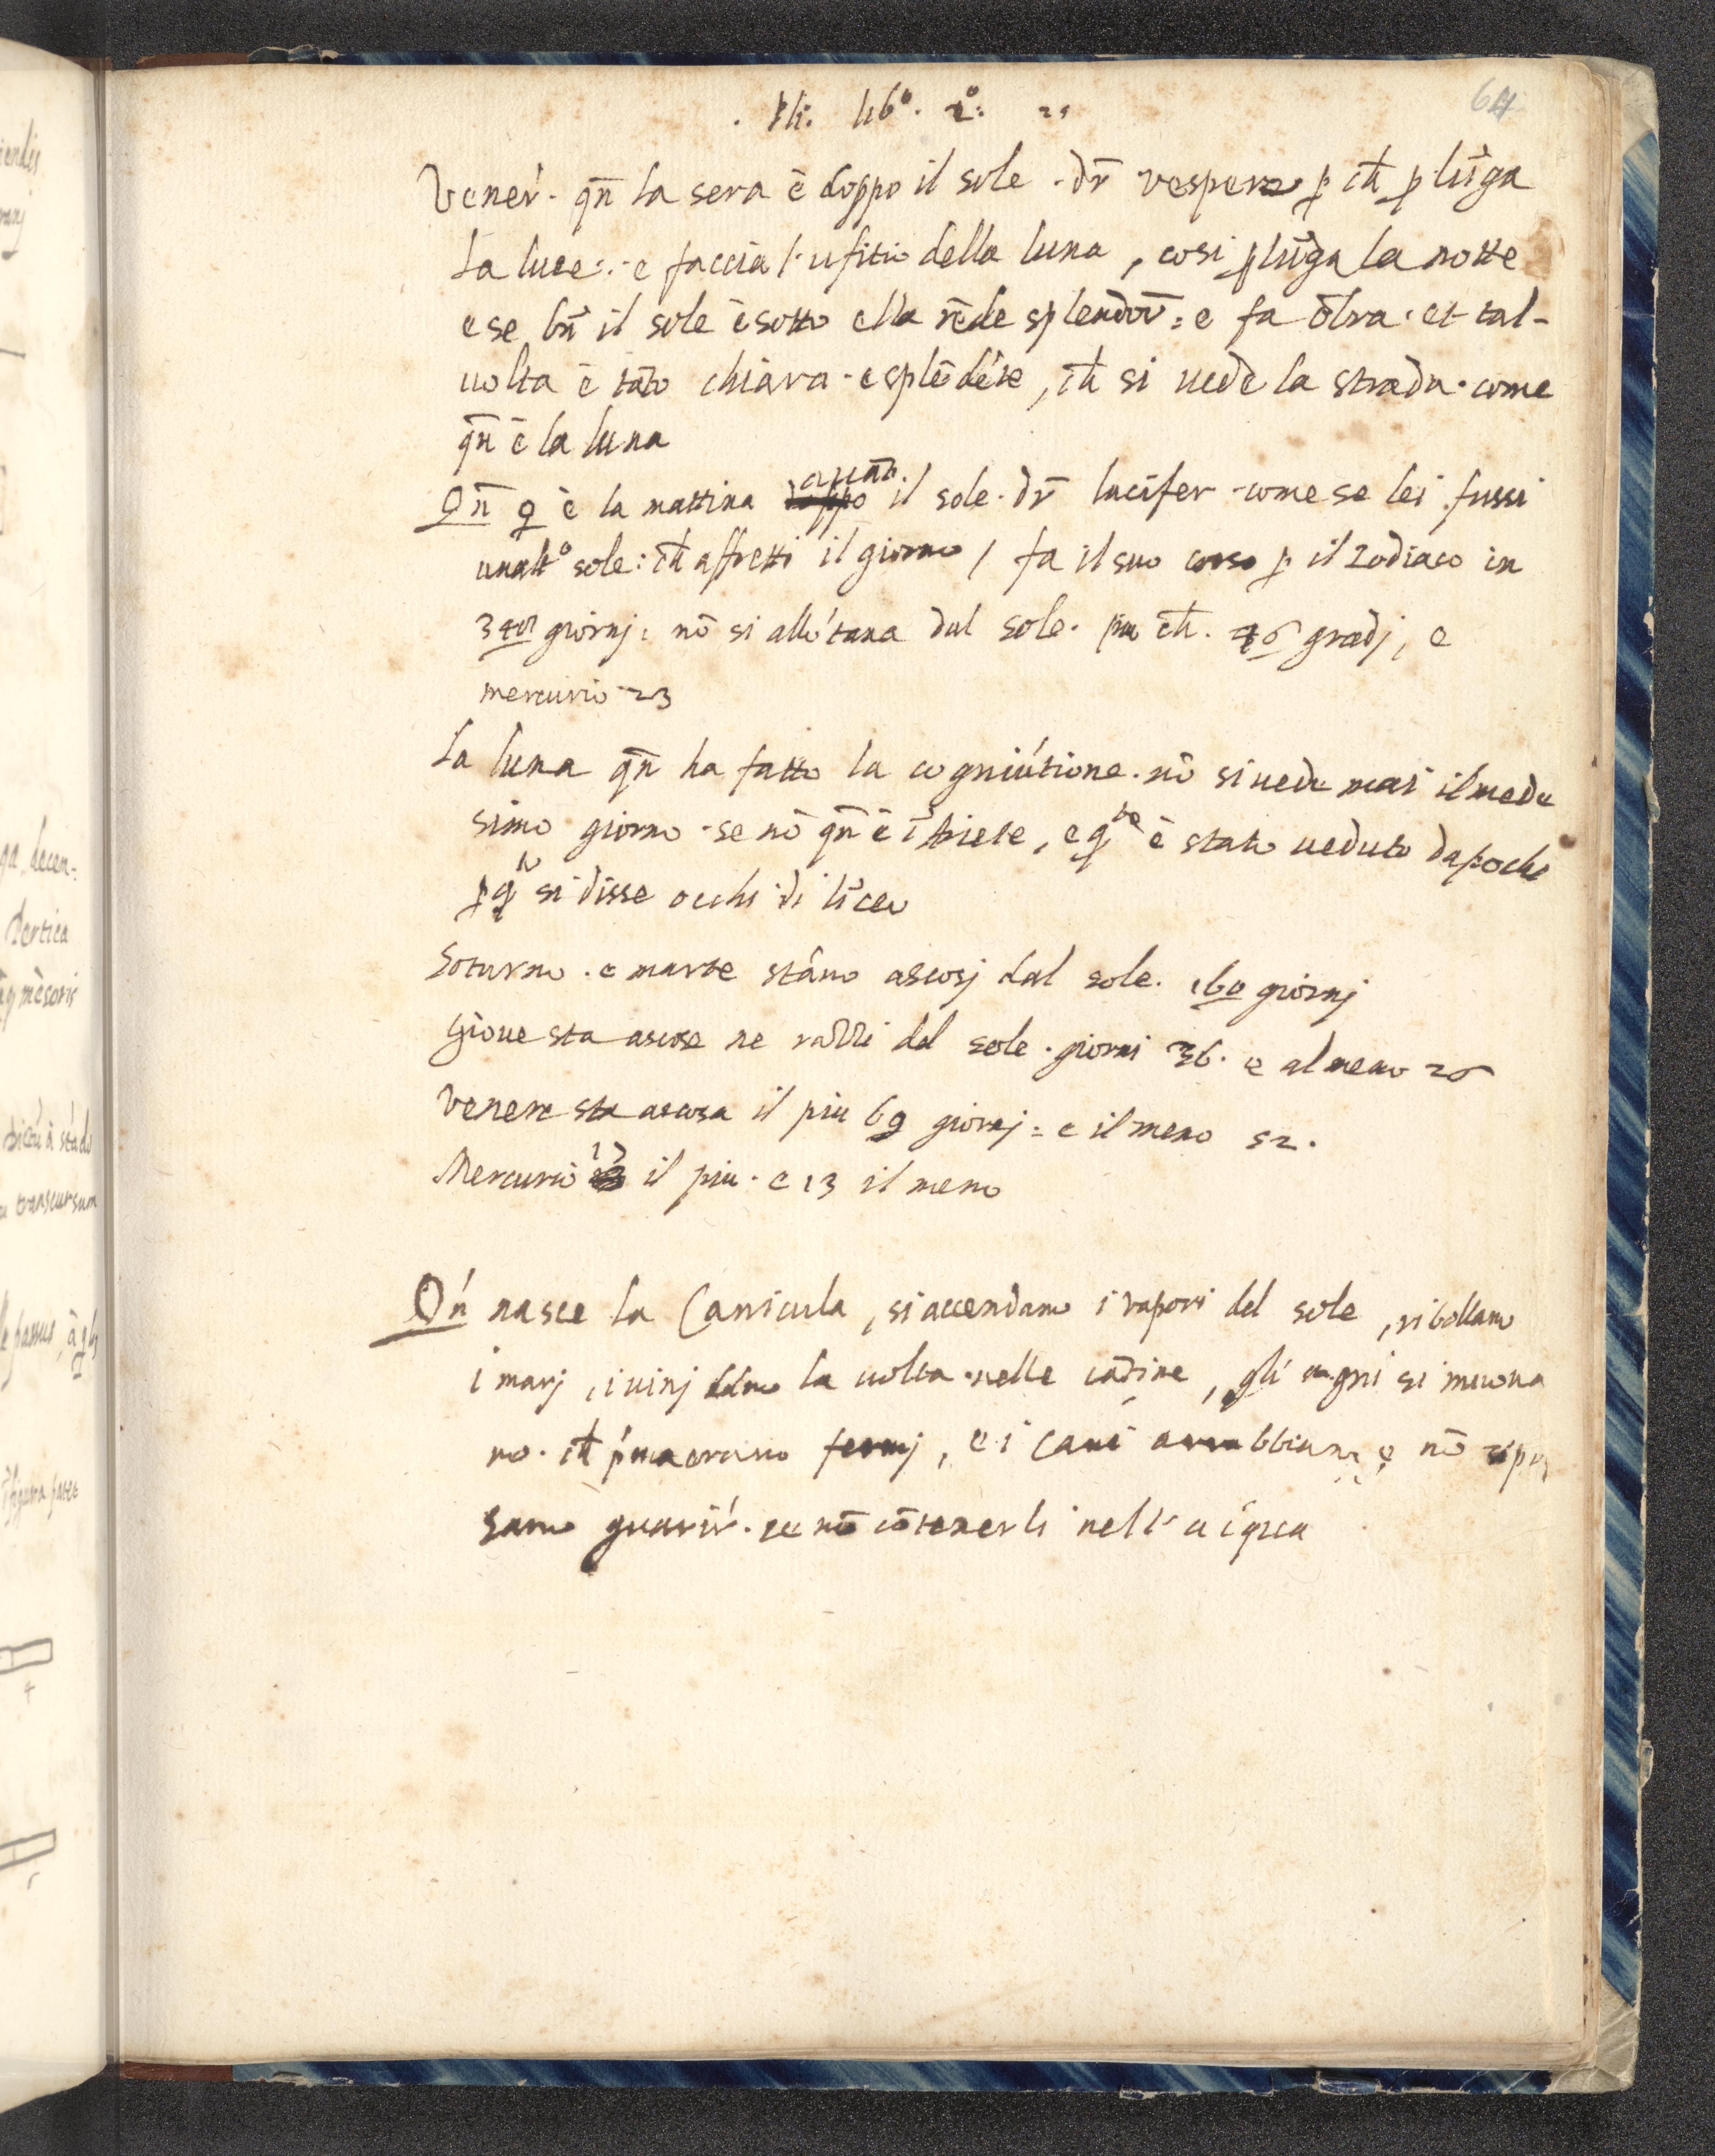 64
. Pli. lib°. 2°: 21
Vener̄ · qn̄ la sera è doppo il sole · dr̄ vespero ꝑ ch̄ ꝑ lūga
la luce : e faccia l'ufitio della luna, cosi ꝑlūga la notte
e se bn̄ il sole è sotto ella rēde splendor̄ : e fa ōbra · et tal-
uolta è tāto chiara · e splēdēte, ch̄ si uede la strada · come
qn̄ è la luna
Qn̄ q è la mattina auāti il sole · dr̄ lucifer · come se lei fussi
unalt° sole : ch̄ affretti il giorno / fa il suo corso ꝑ il zodiaco in
giornj : nō si allōtana dal sole · piu ch̄ · 46 gradj, e
mercurio 23
La luna qn̄ ha fatto la cogniūtione · nō si uede mai il mede
simo giorno · se nō qn̄ è ī Ariete, e q̄ è stato ueduto da poche
ꝑ q̄ si disse occhi di līceo
Soturno · e marte stāno ascosj dal sole · 160 giornj
Gioue sta ascose ne razzi del sole · giorni 36 · e al meno 26
Venere sta ascosa il piu 69 giornj : e il meno 52 ·
Mercurio 17 il piu · e 13 il meno
Qn̄ nasce la Canicula, si accendano i vapori del sole, ribollano
i marj, i uinj dāno la uolta · nelle cātine, gli stagni si muoua
no · ch̄ prima erano fermj, e i cani arrabbiano e nō si pos
sano guarir̄ · se nō cō tenerli nell'acqua
iendis
ga decen-
Vertica
transcursum
passus
figura patet
4